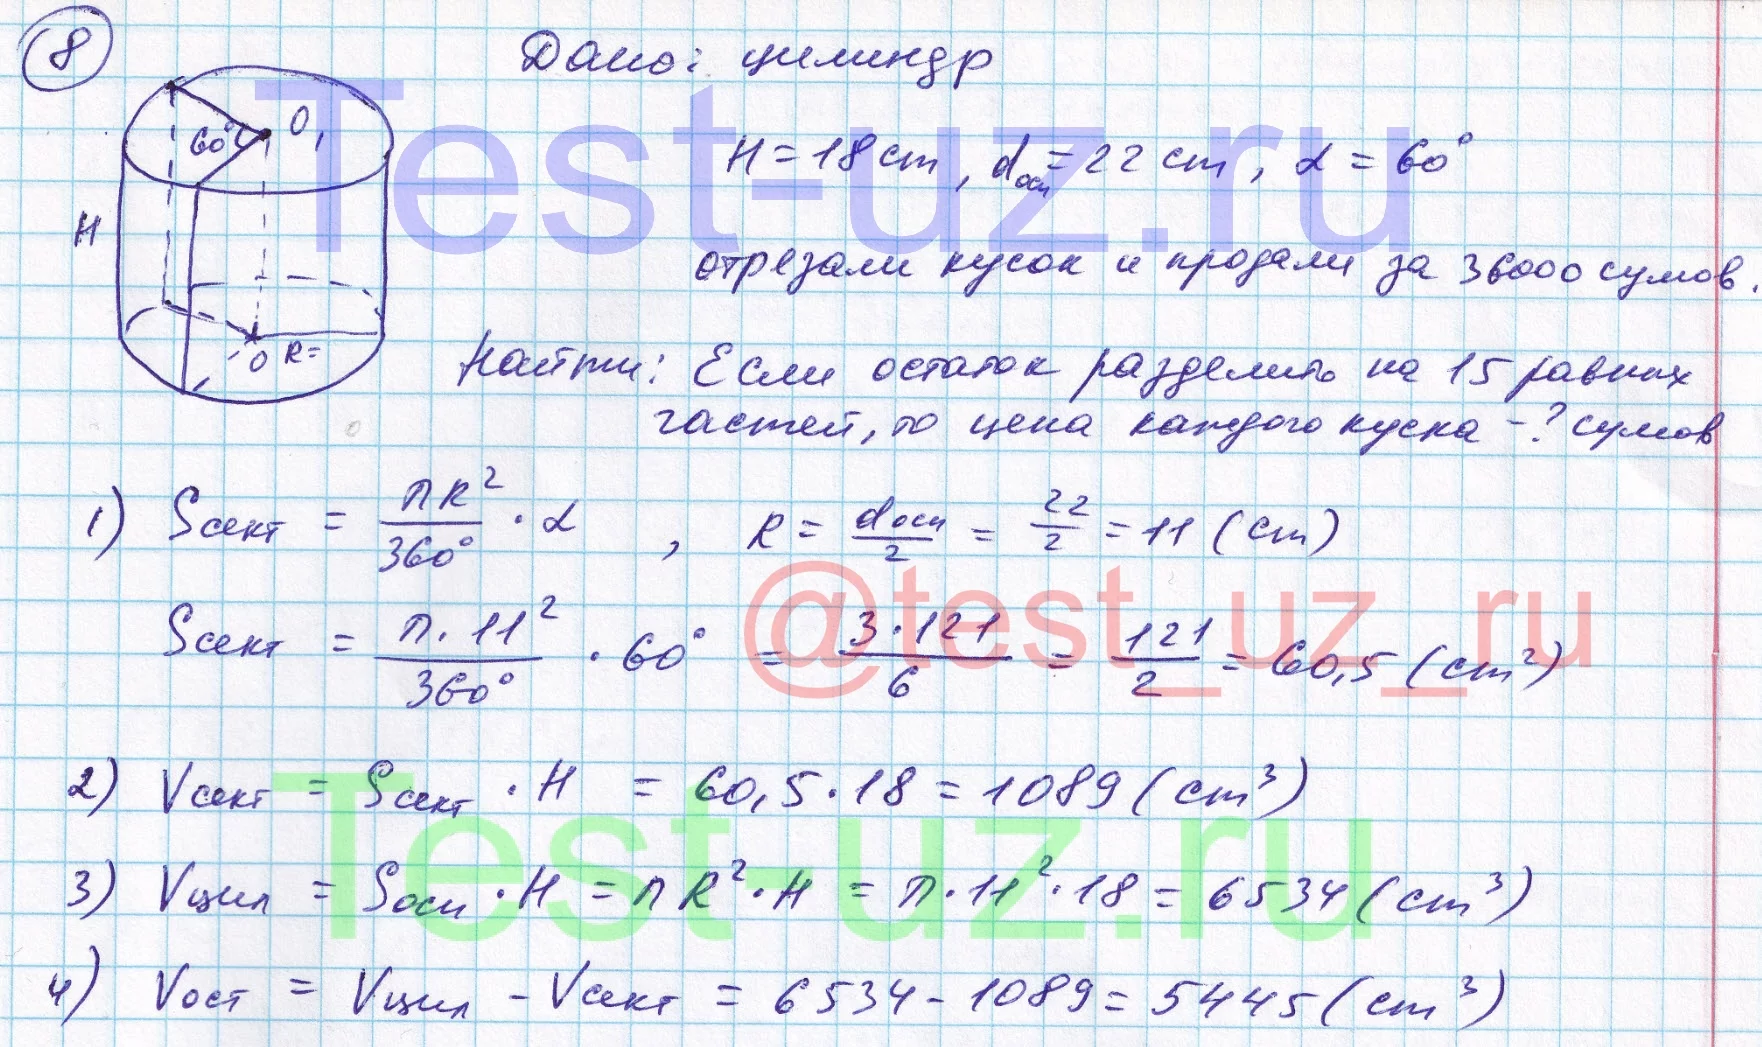 8
Дано: цилиндр
60° O₁
H = 18 cm, dосн = 22 cm, α = 60°
H
отрезали кусок и продали за 36000 сумов.
O R=
Найти: Если остаток разделить на 15 равных
частей, то цена каждого куска - ? сумов
1) Sсект = πR²/360° · α , R = dосн/2 = 22/2 = 11 (cm)
Sсект = π·11²/360° · 60° = 3·121/6 = 121/2 = 60,5 (cm²)
2) Vсект = Sсект · H = 60,5·18 = 1089 (cm³)
3) Vцил = Sосн · H = πR²·H = π·11²·18 = 6534 (cm³)
4) Vост = Vцил - Vсект = 6534 - 1089 = 5445 (cm³)
Test-uz.ru
@test_uz_ru
Test-uz.ru